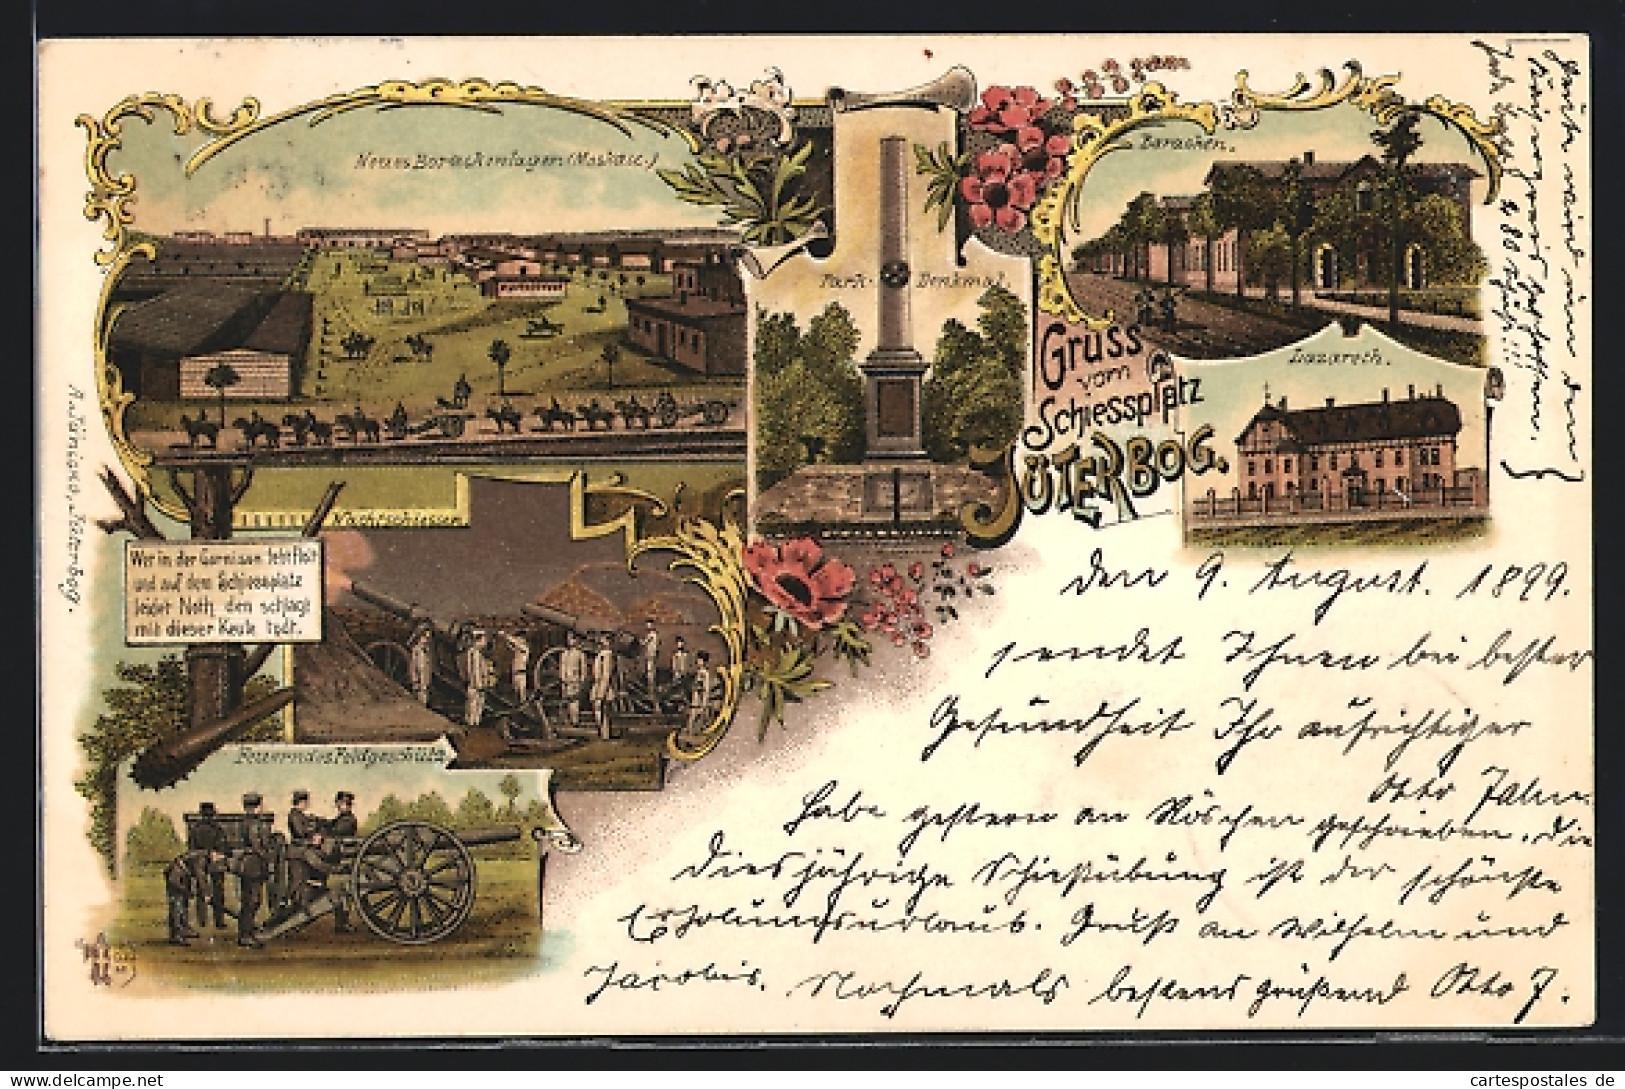 Neues Barackenlager (Moskau.)
Park-Denkmal
Baracken.
Lazareth.
Gruss
vom
Schiessplatz
JÜTERBOG.
Nachtschiessen
Wer in der Garnison lebt flott
und auf dem Schiessplatz
leidet Noth, den schlagt
mit dieser Keule todt.
Feuerndes Feldgeschütz
Jüterbog.
den 9. August. 1899.
sendet Ihnen bei bester
Gesundheit Ihr aufrichtiger
Otto Jahn.
Habe gestern an Röschen geschrieben. Die
diesjährige Schießübung ist der schönste
Erholungsurlaub. Gruß an Wilhelm und
Jacobus. Nochmals bestens grüßend Otto J.
cartespostales de